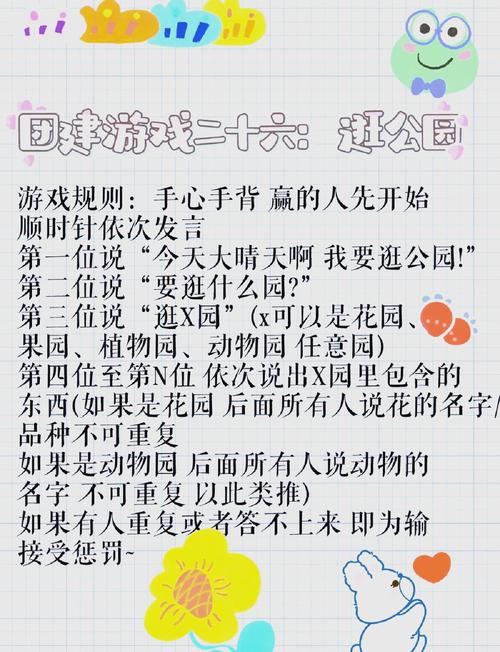 团建游戏二十六：逛公园
游戏规则：手心手背 赢的人先开始
顺时针依次发言
第一位说“今天大晴天啊 我要逛公园!”
第二位说“要逛什么园?”
第三位说“逛X园”(x可以是花园、
果园、植物园、动物园 任意园)
第四位至第N位 依次说出X园里包含的
东西(如果是花园 后面所有人说花的名字/
品种不可重复
如果是动物园 后面所有人说动物的
名字 不可重复 以此类推)
如果有人重复或者答不上来 即为输
接受惩罚~